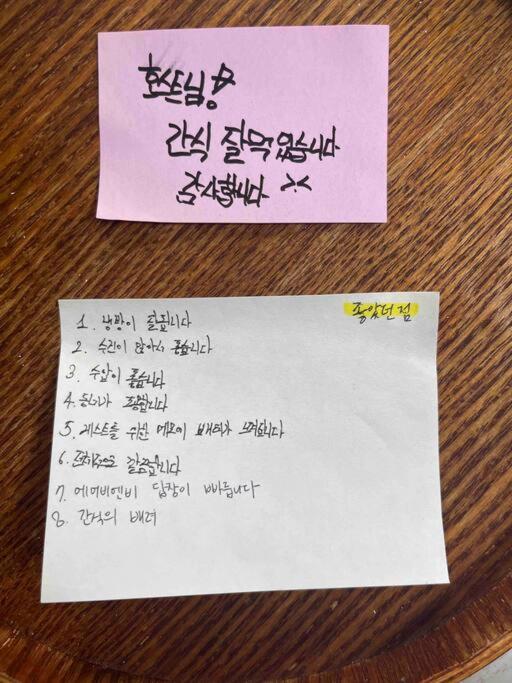 호스트님!
간식 잘먹었습니다
감사합니다
좋았던 점
1. 냉방이 잘됩니다
2. 수건이 많아서 좋습니다
3. 수압이 좋습니다
4. 침구가 포함됩니다
5. 게스트를 위한 메모에 배려가 느껴집니다
6. 전체적으로 깔끔합니다
7. 에어비엔비 답장이 빠릅니다
8. 간식의 배려